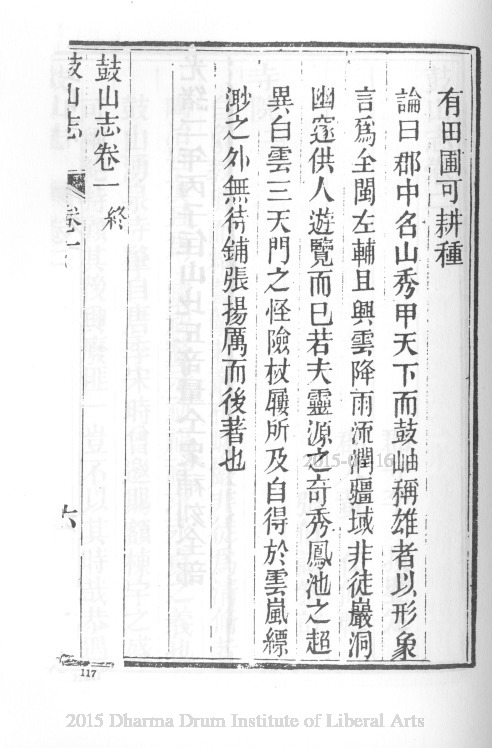 有田圃可耕種
論曰郡中名山秀甲天下而鼓岫稱雄者以形象
言爲全閩左輔且興雲降雨流潤疆域非徒巖洞
幽邃供人遊覽而已若夫靈源之奇秀鳳池之超
異白雲三天門之怪險杖屨所及自得於雲嵐縹
渺之外無待鋪張揚厲而後著也
鼓山志卷一 終
鼓山志 卷一 六
117
2015 Dharma Drum Institute of Liberal Arts